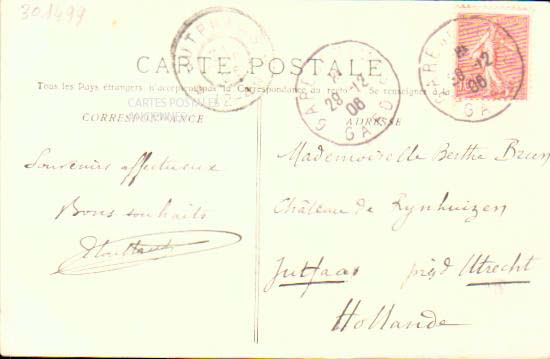 301499
CARTE POSTALE
Tous les Pays étrangers n'acceptent pas la Correspondance au recto. Se renseigner à la
CARTES POSTALES
CORRESPONDANCE
ADRESSE
GARE
28-12
06
GARD
GARE
28-12
06
GA
Souvenirs affectueux
Bons souhaits
Mademoiselle Berthe Brun
Château de Rynhuizen
Jutfaas près d'Utrecht
Hollande